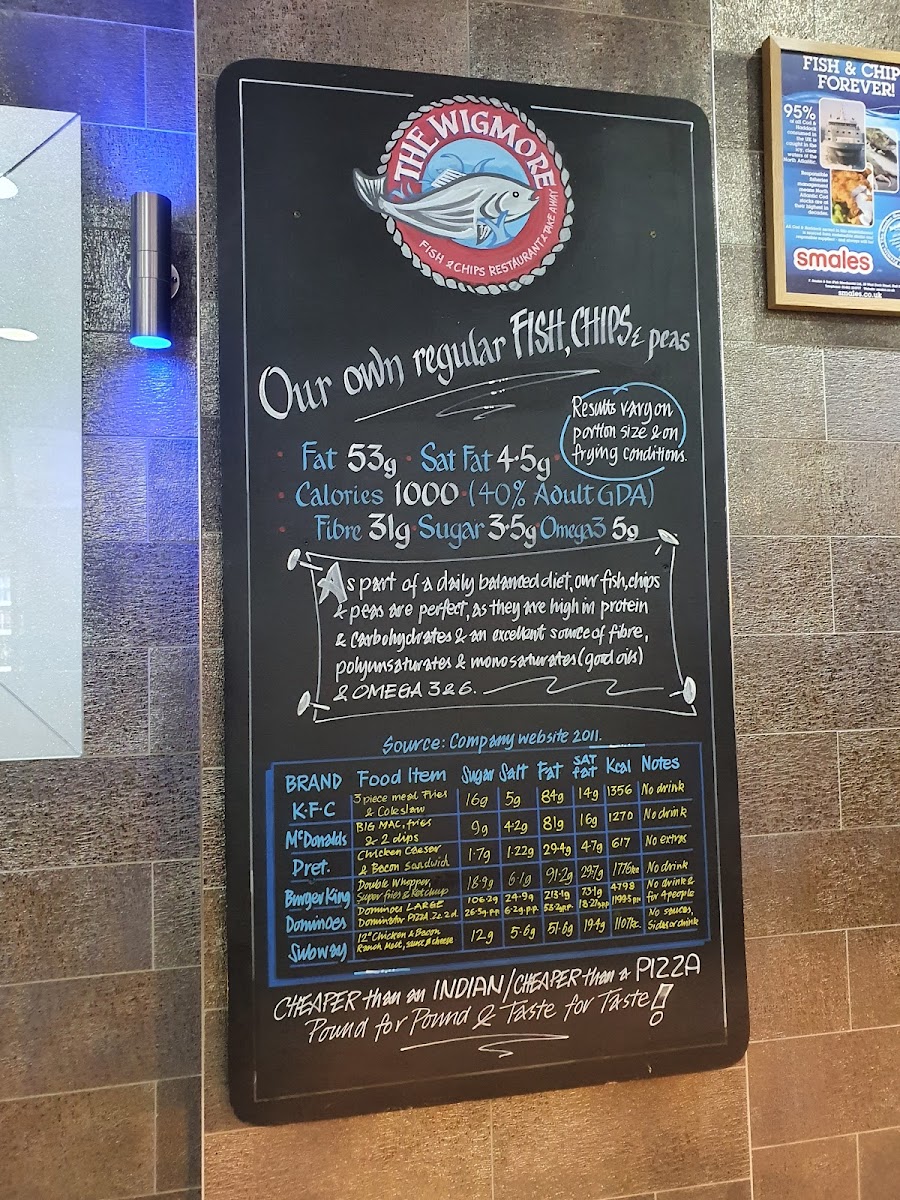 THE WIGMORE
FISH & CHIPS RESTAURANT & TAKE AWAY
Our own regular FISH, CHIPS & peas
Results vary on
portion size & on
frying conditions.
Fat 53g · Sat Fat 4·5g
Calories 1000 (40% Adult GDA)
Fibre 31g · Sugar 3·5g Omega3 5g
As part of a daily balanced diet, our fish, chips
& peas are perfect, as they are high in protein
& carbohydrates & an excellent source of fibre,
polyunsaturates & monosaturates (good oils)
& OMEGA 3 & 6.
Source: Company website 2011.
BRAND Food Item Sugar Salt Fat SAT fat Kcal Notes
K·F·C 3 piece meal Fries & Coleslaw 16g 5g 84g 14g 1356 No drink
McDonalds BIG MAC, fries & 2 dips 9g 4·2g 81g 16g 1270 No drink
Pret. Chicken Caesar & Bacon sandwich 1·7g 1·22g 29·4g 4·7g 617 No extras
Burger King Double Whopper, Super fries & Ketchup 18·9g 6·1g 91·2g 29·7g 1776 No drink
Dominoes Dominoes LARGE Dominator PIZZA 106·2g 24·9g 213·1g 73·1g 4798 No drink & for 4 people
26·5g p.p 6·2g p.p
Subway 12" Chicken & Bacon Ranch Melt, sauce & cheese 12g 5·6g 51·6g 19·4g 1107 No sauces, Sides or drink
CHEAPER than an INDIAN / CHEAPER than a PIZZA
Pound for Pound & Taste for Taste!
FISH & CHIP
FOREVER!
95%
of all Cod &
Haddock
consumed in
the UK is
caught in the
icy, clear
waters of the
North Atlantic.
Responsible
fisheries
management
means North
Atlantic Cod
stocks are at
their highest in
decades.
smales
smales.co.uk